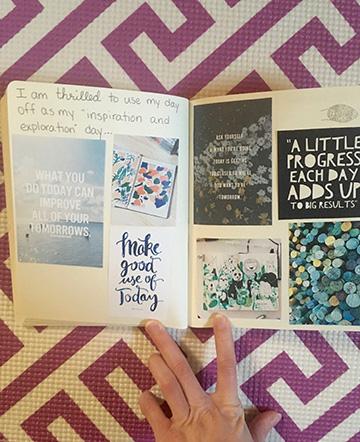 I am thrilled to use my day
off as my "inspiration and
exploration" day...
WHAT YOU
DO TODAY CAN
IMPROVE
ALL OF YOUR
TOMORROWS.
make
good
use of
Today
ASK YOURSELF
IF WHAT YOU'RE DOING
TODAY IS GETTING
YOU CLOSER TO WHERE
YOU WANT TO BE
TOMORROW
"A LITTLE
PROGRESS
EACH DAY
ADDS UP
TO BIG RESULTS"